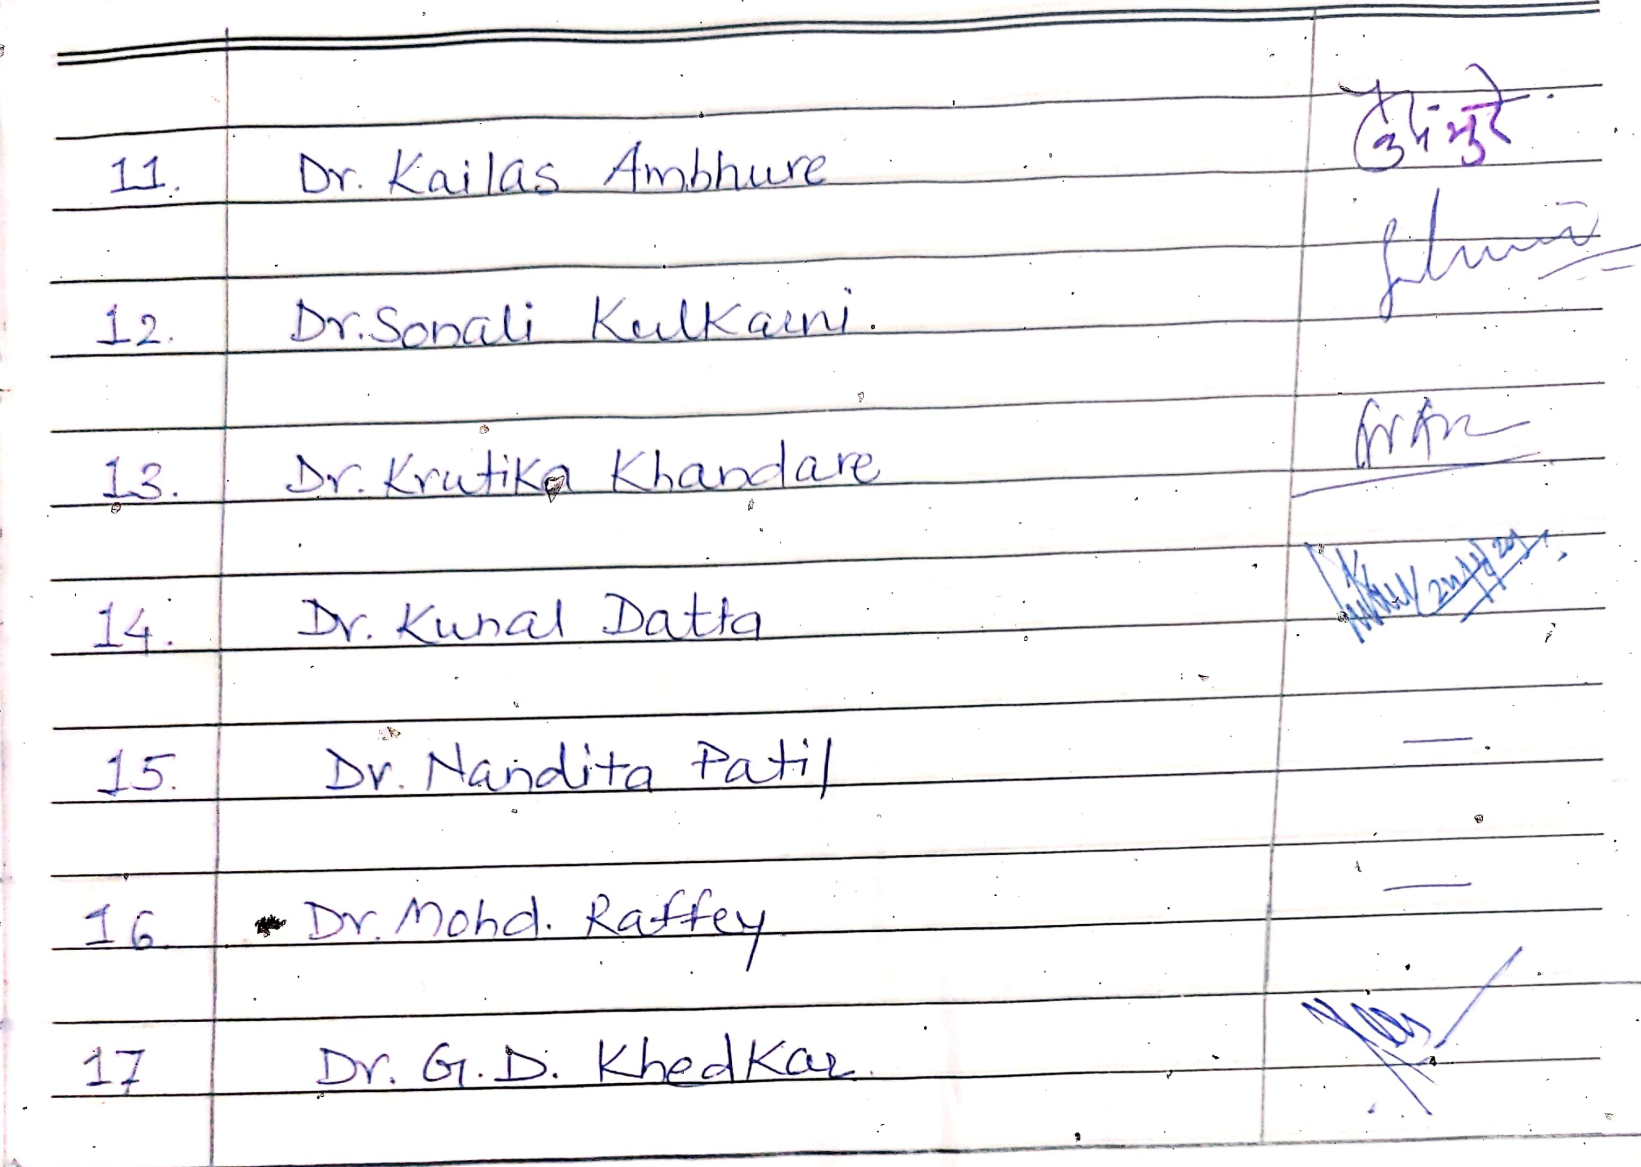 11. Dr. Kailas Ambhure
12. Dr. Sonali Kulkarni.
13. Dr. Krutika Khandare
14. Dr. Kunal Datta
15. Dr. Nandita Patil —
16. Dr. Mohd. Raffey —
17 Dr. G. D. Khedkar